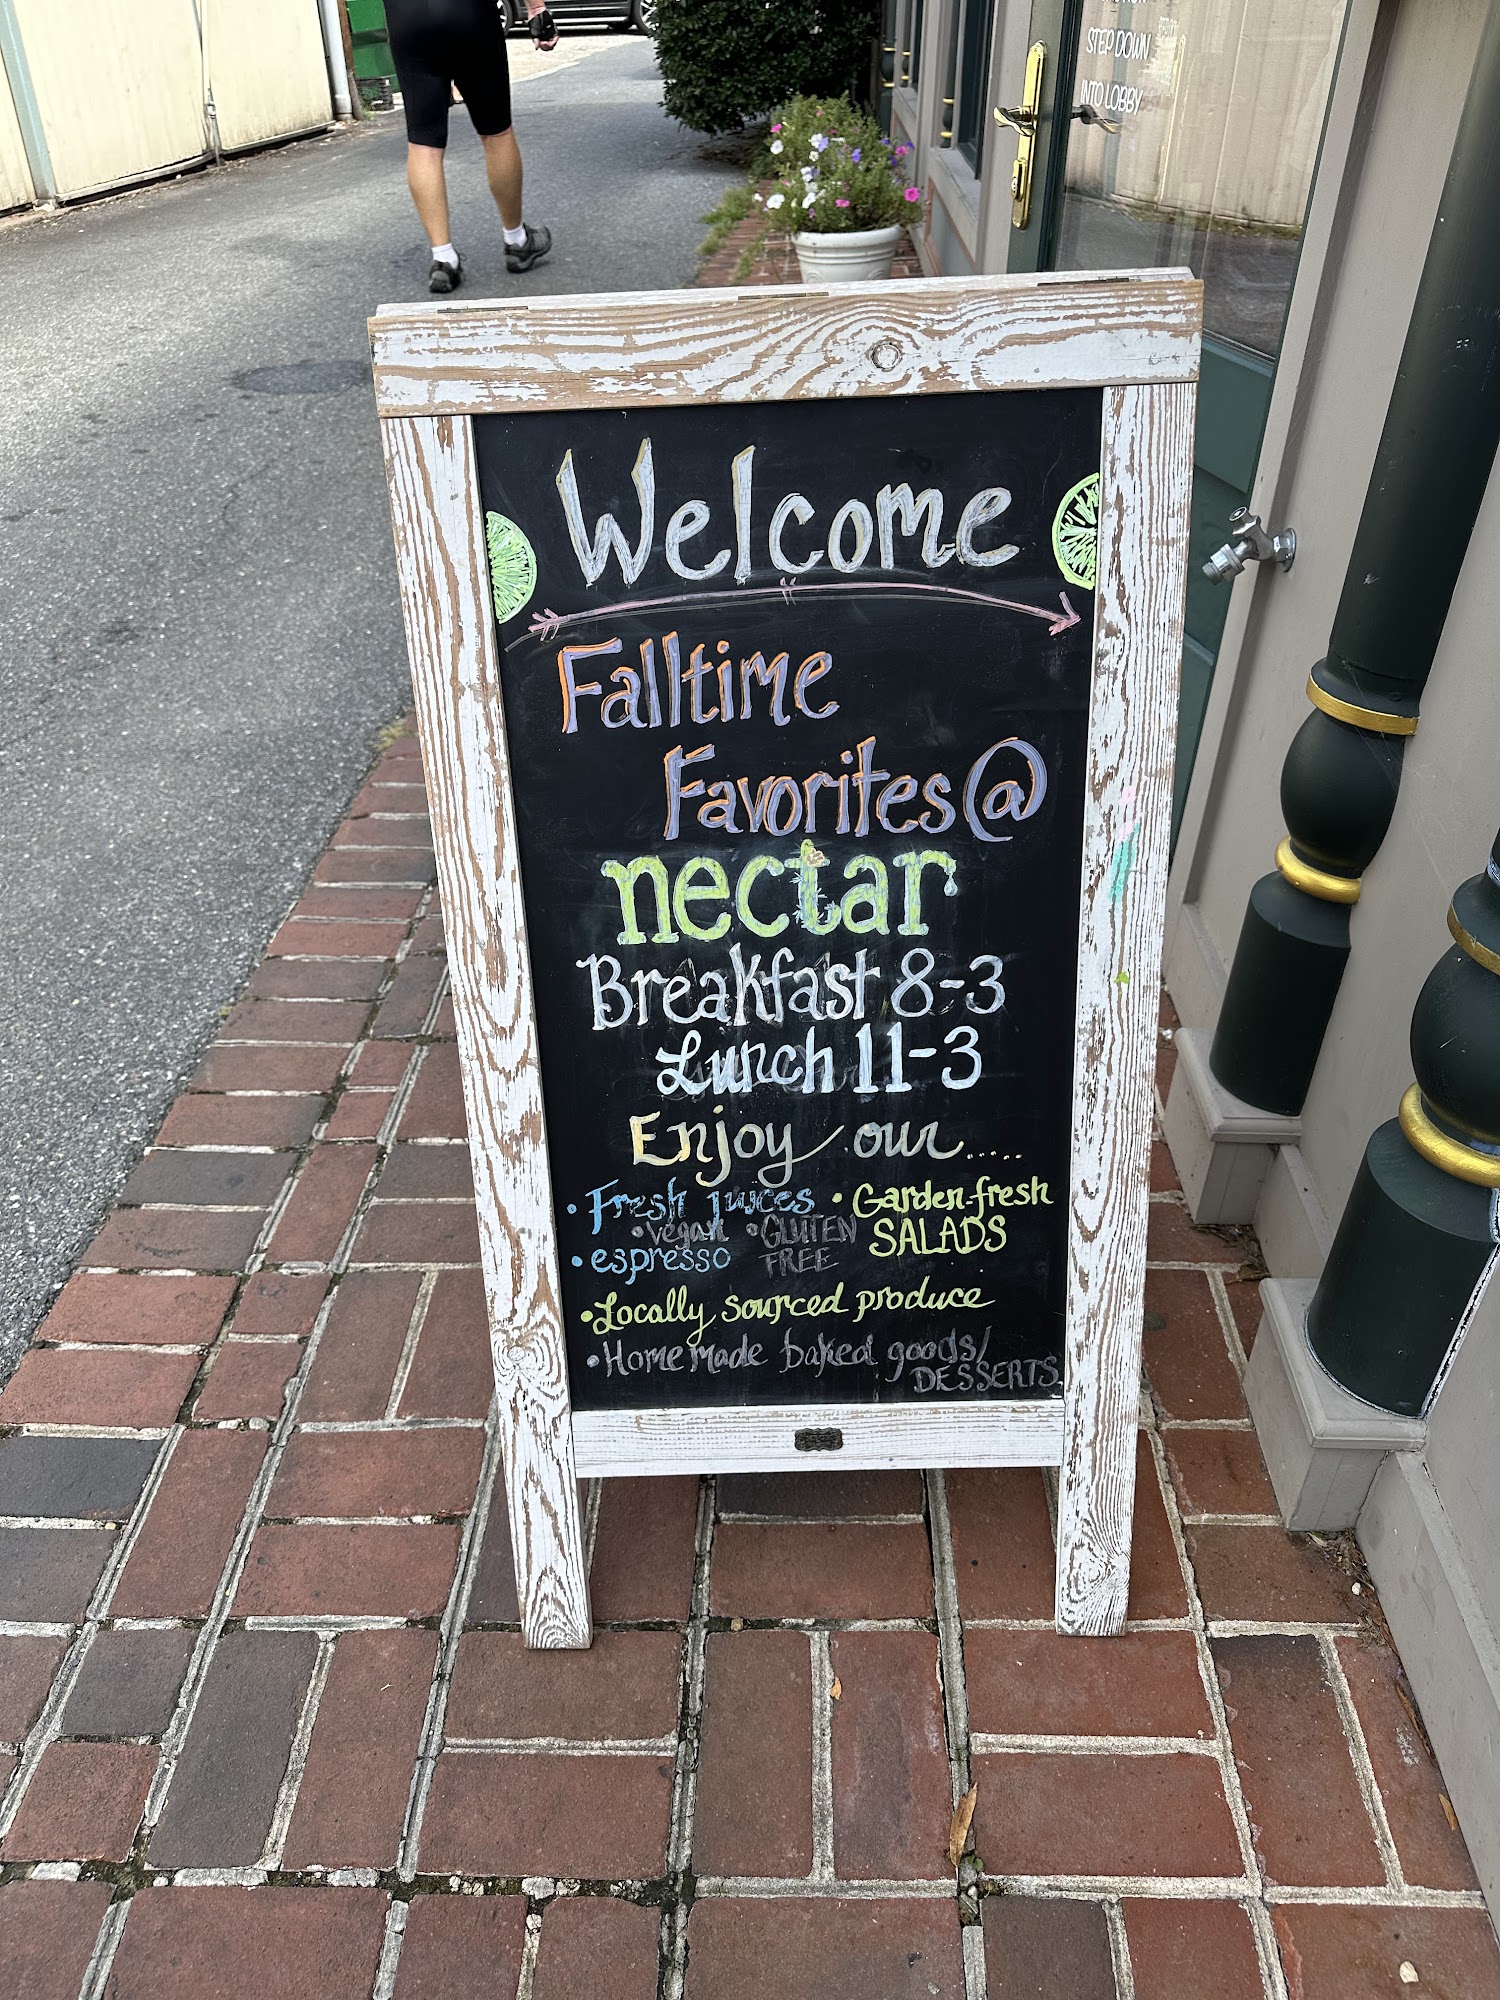 STEP DOWN
INTO LOBBY
Welcome
Falltime
Favorites @
nectar
Breakfast 8-3
Lunch 11-3
Enjoy our.....
• Fresh juices • Garden-fresh
• vegan • GLUTEN SALADS
• espresso FREE
• Locally sourced produce
• Homemade baked goods/
DESSERTS